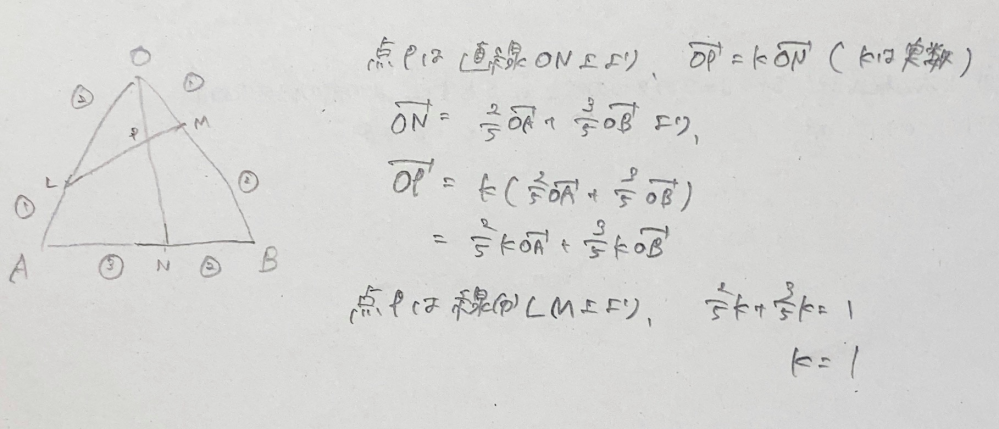 O
② ①
P M
L
① ②
A ③ N ② B
点Pは直線ON上より、 $\overrightarrow{OP} = k\overrightarrow{ON}$ (kは実数)
$\overrightarrow{ON} = \frac{2}{5}\overrightarrow{OA} + \frac{3}{5}\overrightarrow{OB}$ より、
$\overrightarrow{OP} = k(\frac{2}{5}\overrightarrow{OA} + \frac{3}{5}\overrightarrow{OB})$
$= \frac{2}{5}k\overrightarrow{OA} + \frac{3}{5}k\overrightarrow{OB}$
点Pは線分LM上より、 $\frac{2}{5}k + \frac{3}{5}k = 1$
k = 1